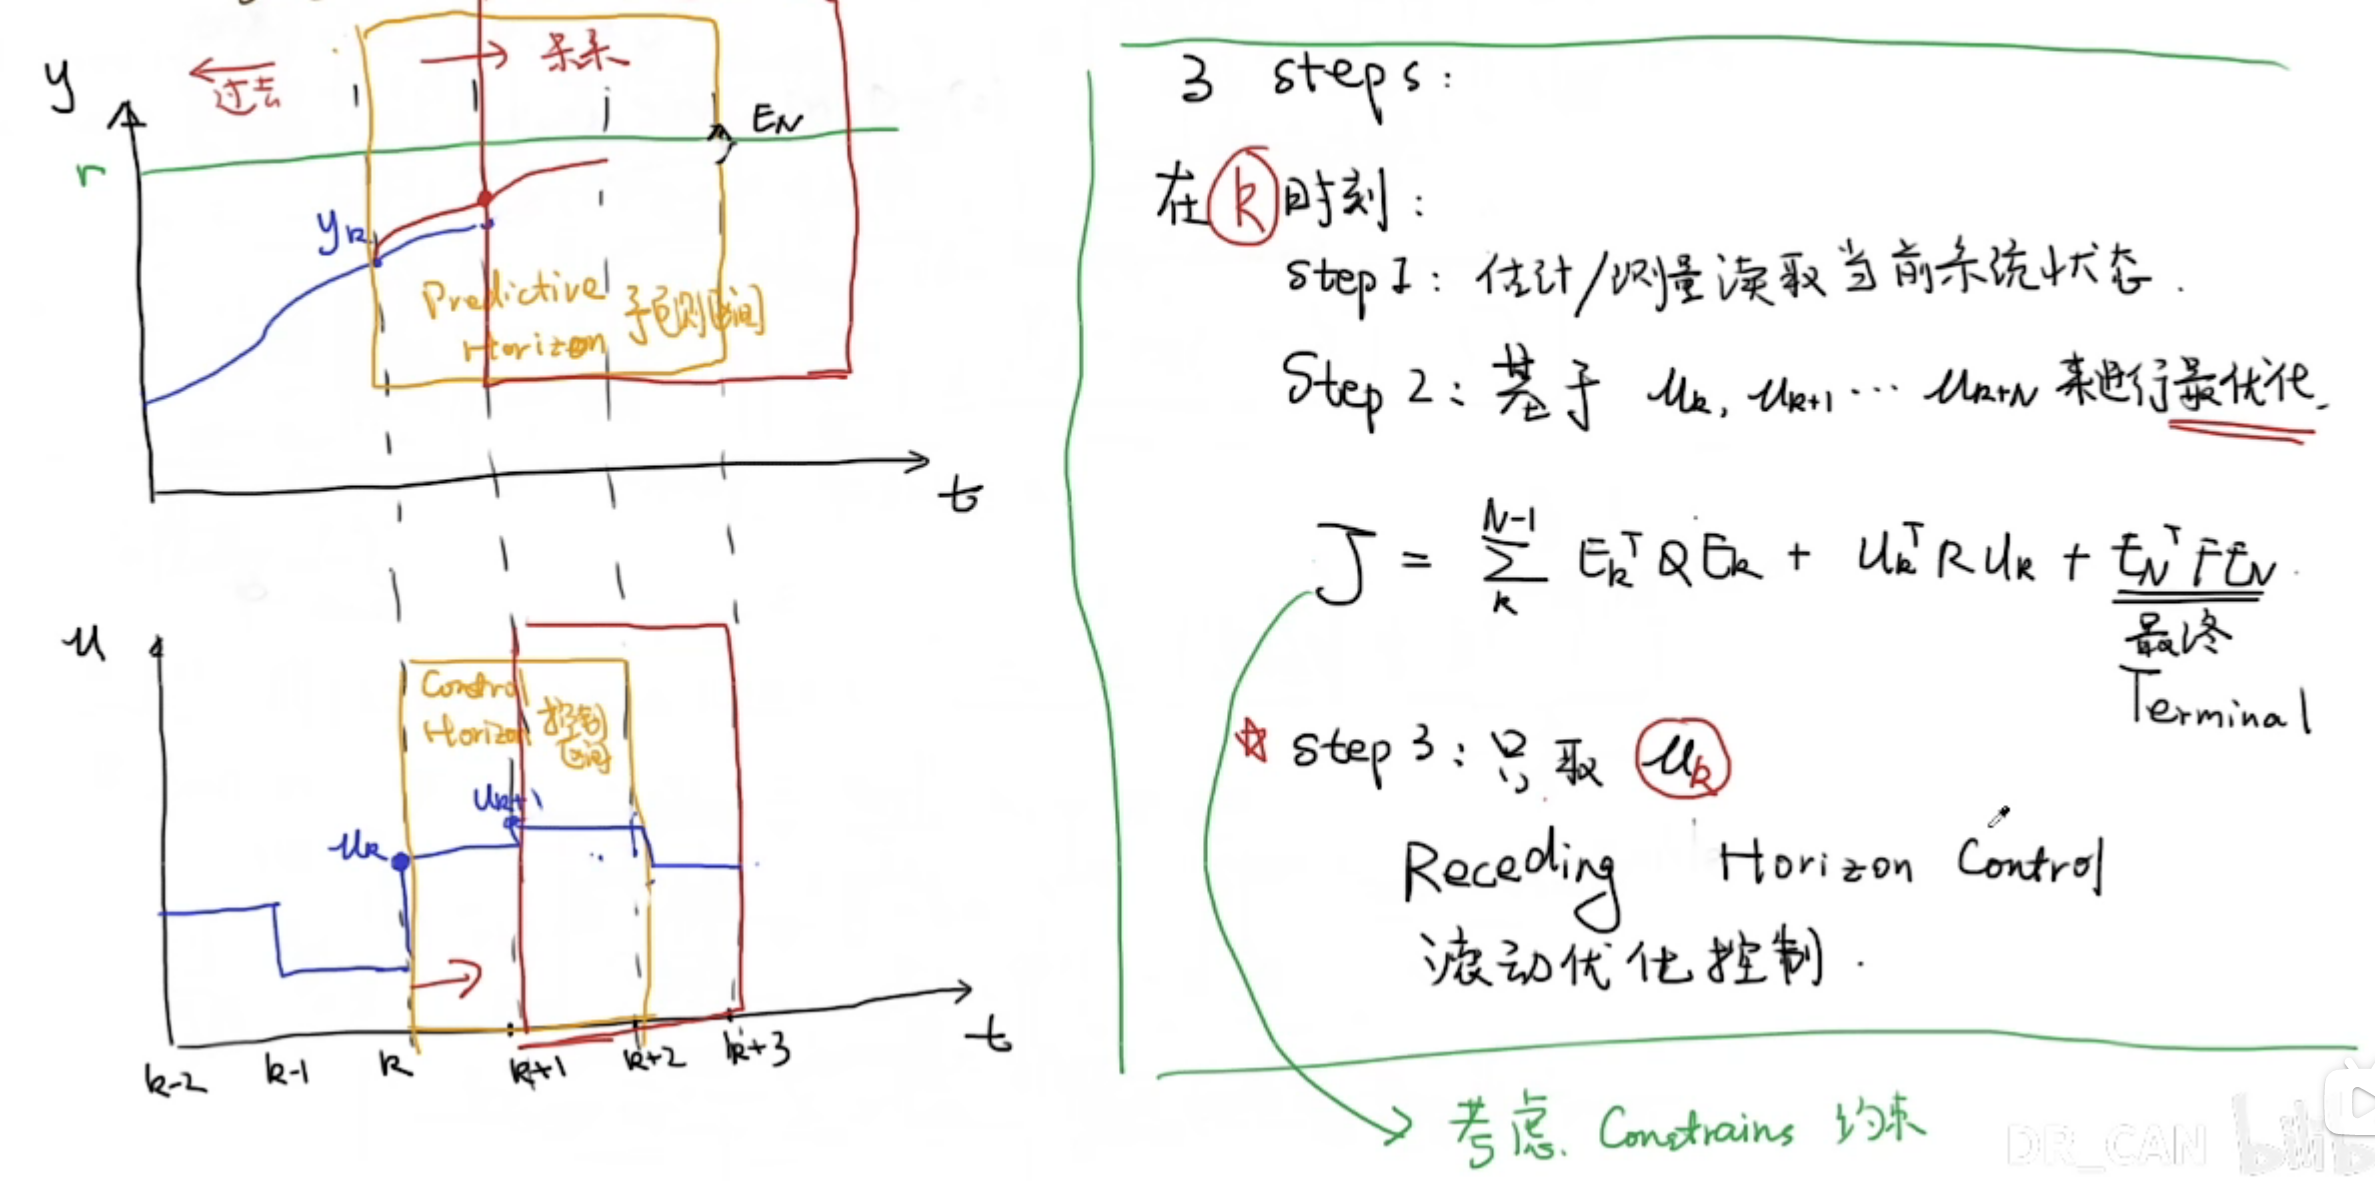 y
过去
未来
E_N
r
y_k
Predictive
Horizon 预测区间
t
u
Control
Horizon 控制
区间
u_{k+1}
u_k
t
k-2 k-1 k k+1 k+2 k+3
3 steps:
在 k 时刻:
step 1: 估计/测量读取当前系统状态.
Step 2: 基于 u_k, u_{k+1} ... u_{k+N} 来进行最优化.
J = \sum_{k}^{N-1} E_k^T Q E_k + u_k^T R u_k + E_N^T F E_N.
最终
Terminal
☆ step 3: 只取 u_k
Receding Horizon Control
滚动优化控制.
考虑. Constrains 约束
DR_CAN bilibili